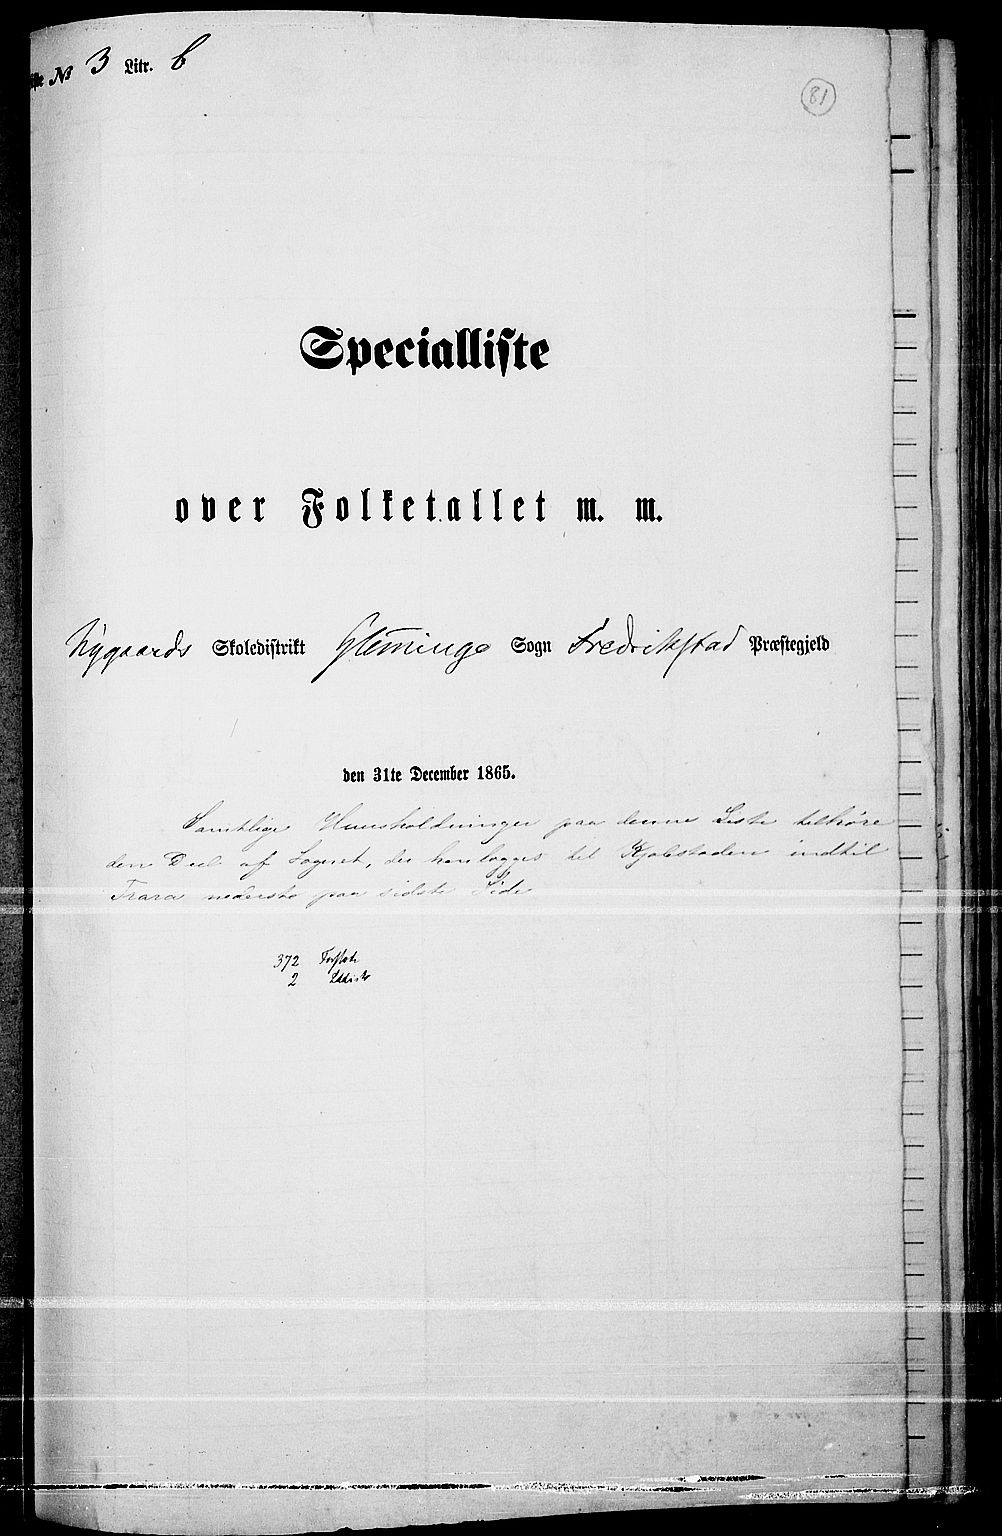 Liste № 3 Litr. b
81
Specialliste
over Folketallet m. m.
Nygaards Skoledistrikt Glemminge Sogn Fredrikstad Præstegjeld
den 31te December 1865.
Samtlige Huusholdninger paa denne Liste tilhøre
den Deel af Sognet, der henlægges til Kjøbstaden indtil
Trara nederst paa sidste Side
372
2